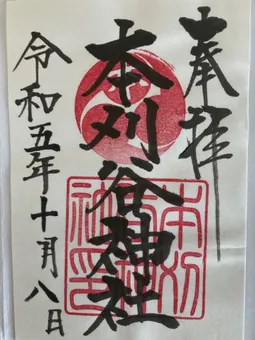 奉拝
本刈谷神社
令和五年十月八日
本刈
谷神
社印